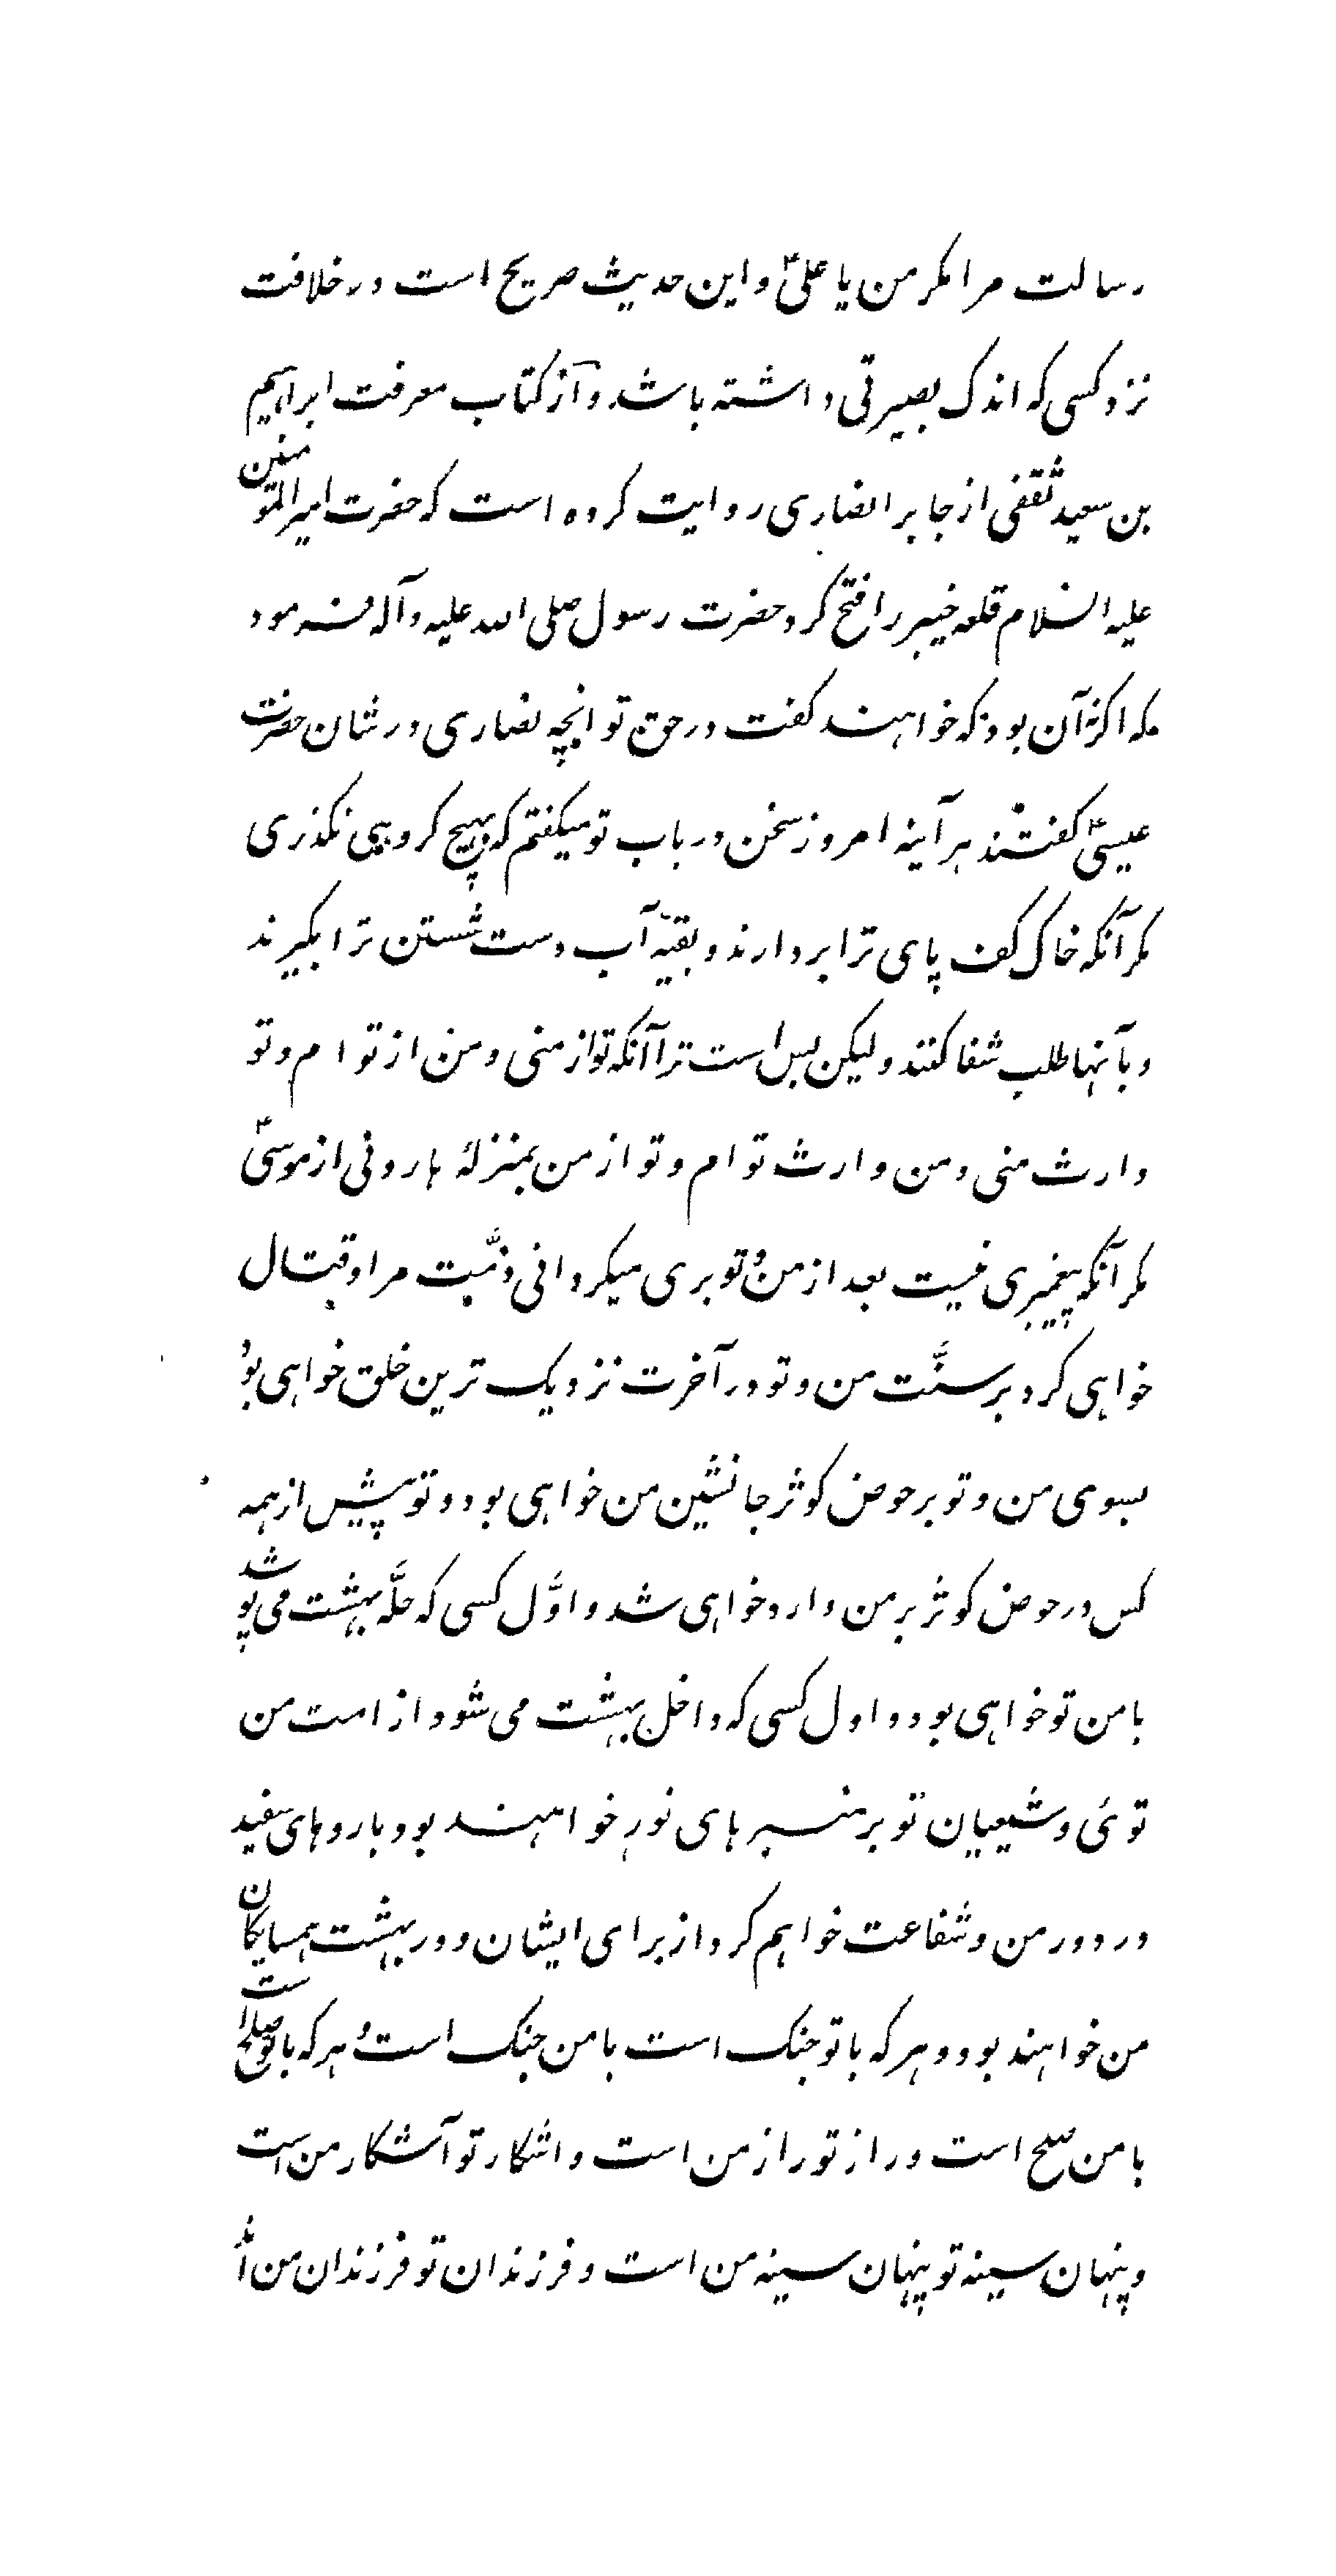 رسالت مرا مکر من یا علیؑ و این حدیث صریح است در خلافت
نزد کسی که اندک بصیرتی داشته باشد و آز کتاب معرفت ابراهیم
بن سعید ثقفی از جابر انصاری روایت کرده است که حضرت امیرالمؤمنین
علیه السلام قلعه خیبر را فتح کرد حضرت رسول صلی الله علیه و آله فرمود
که اکر نه آن بود که خواهند کفت در حق تو انچه نصاری در شان حضرت
عیسیؑ کفتند هر آینه امروز سخن در باب تو میکفتم که بهیچ کروهی نکذری
مکر آنکه خاک کف پای ترا بردارند و بقیه آب دست شستن ترا بکیرند
و بآنها طلب شفا کنند و لیکن بس است ترا آنکه تو از منی و من از تو ام و تو
وارث منی و من وارث تو ام و تو از من بمنزلهٔ هارونی از موسیؑ
مکر آنکه پیغمبری نیست بعد از من و تو بری میکردانی ذمّت مرا و قتال
خواهی کرد بر سنّت من و تو در آخرت نزدیک ترین خلق خواهی بود
بسوی من و تو بر حوض کوثر جانشین من خواهی بود و تو پیش از همه
کس در حوض کوثر بر من وارد خواهی شد و اوّل کسی که حلّه بهشت می پوشد
با من تو خواهی بود و اول کسی که داخل بهشت می شود از امت من
توئی و شیعیان تو بر منبر های نور خواهند بود با روهای سفید
در دور من و شفاعت خواهم کرد از برای ایشان و در بهشت همسایکان
من خواهند بود و هر که با تو جنک است با من جنک است و هر که با تو صلح است
با من صلح است و راز تو راز من است و اشکار تو آشکار من است
و پنهان سینه تو پنهان سینه من است و فرزندان تو فرزندان من اند